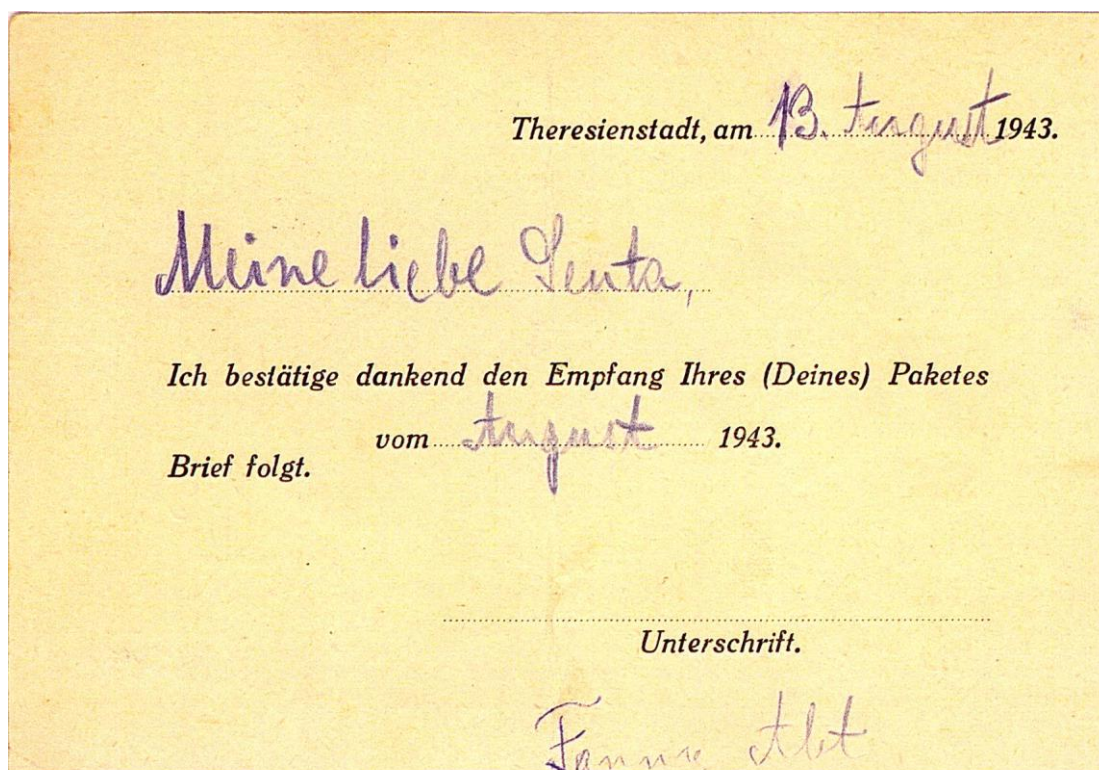 Theresienstadt, am 13. August 1943.
Meine liebe Senta,
Ich bestätige dankend den Empfang Ihres (Deines) Paketes
vom August 1943.
Brief folgt.
Unterschrift.
Fanny Abt